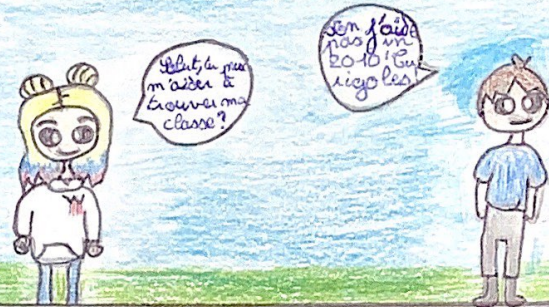 Salut, tu peux
m'aider à
trouver ma
classe?
j'aide
pas un
2010! Tu
rigoles!